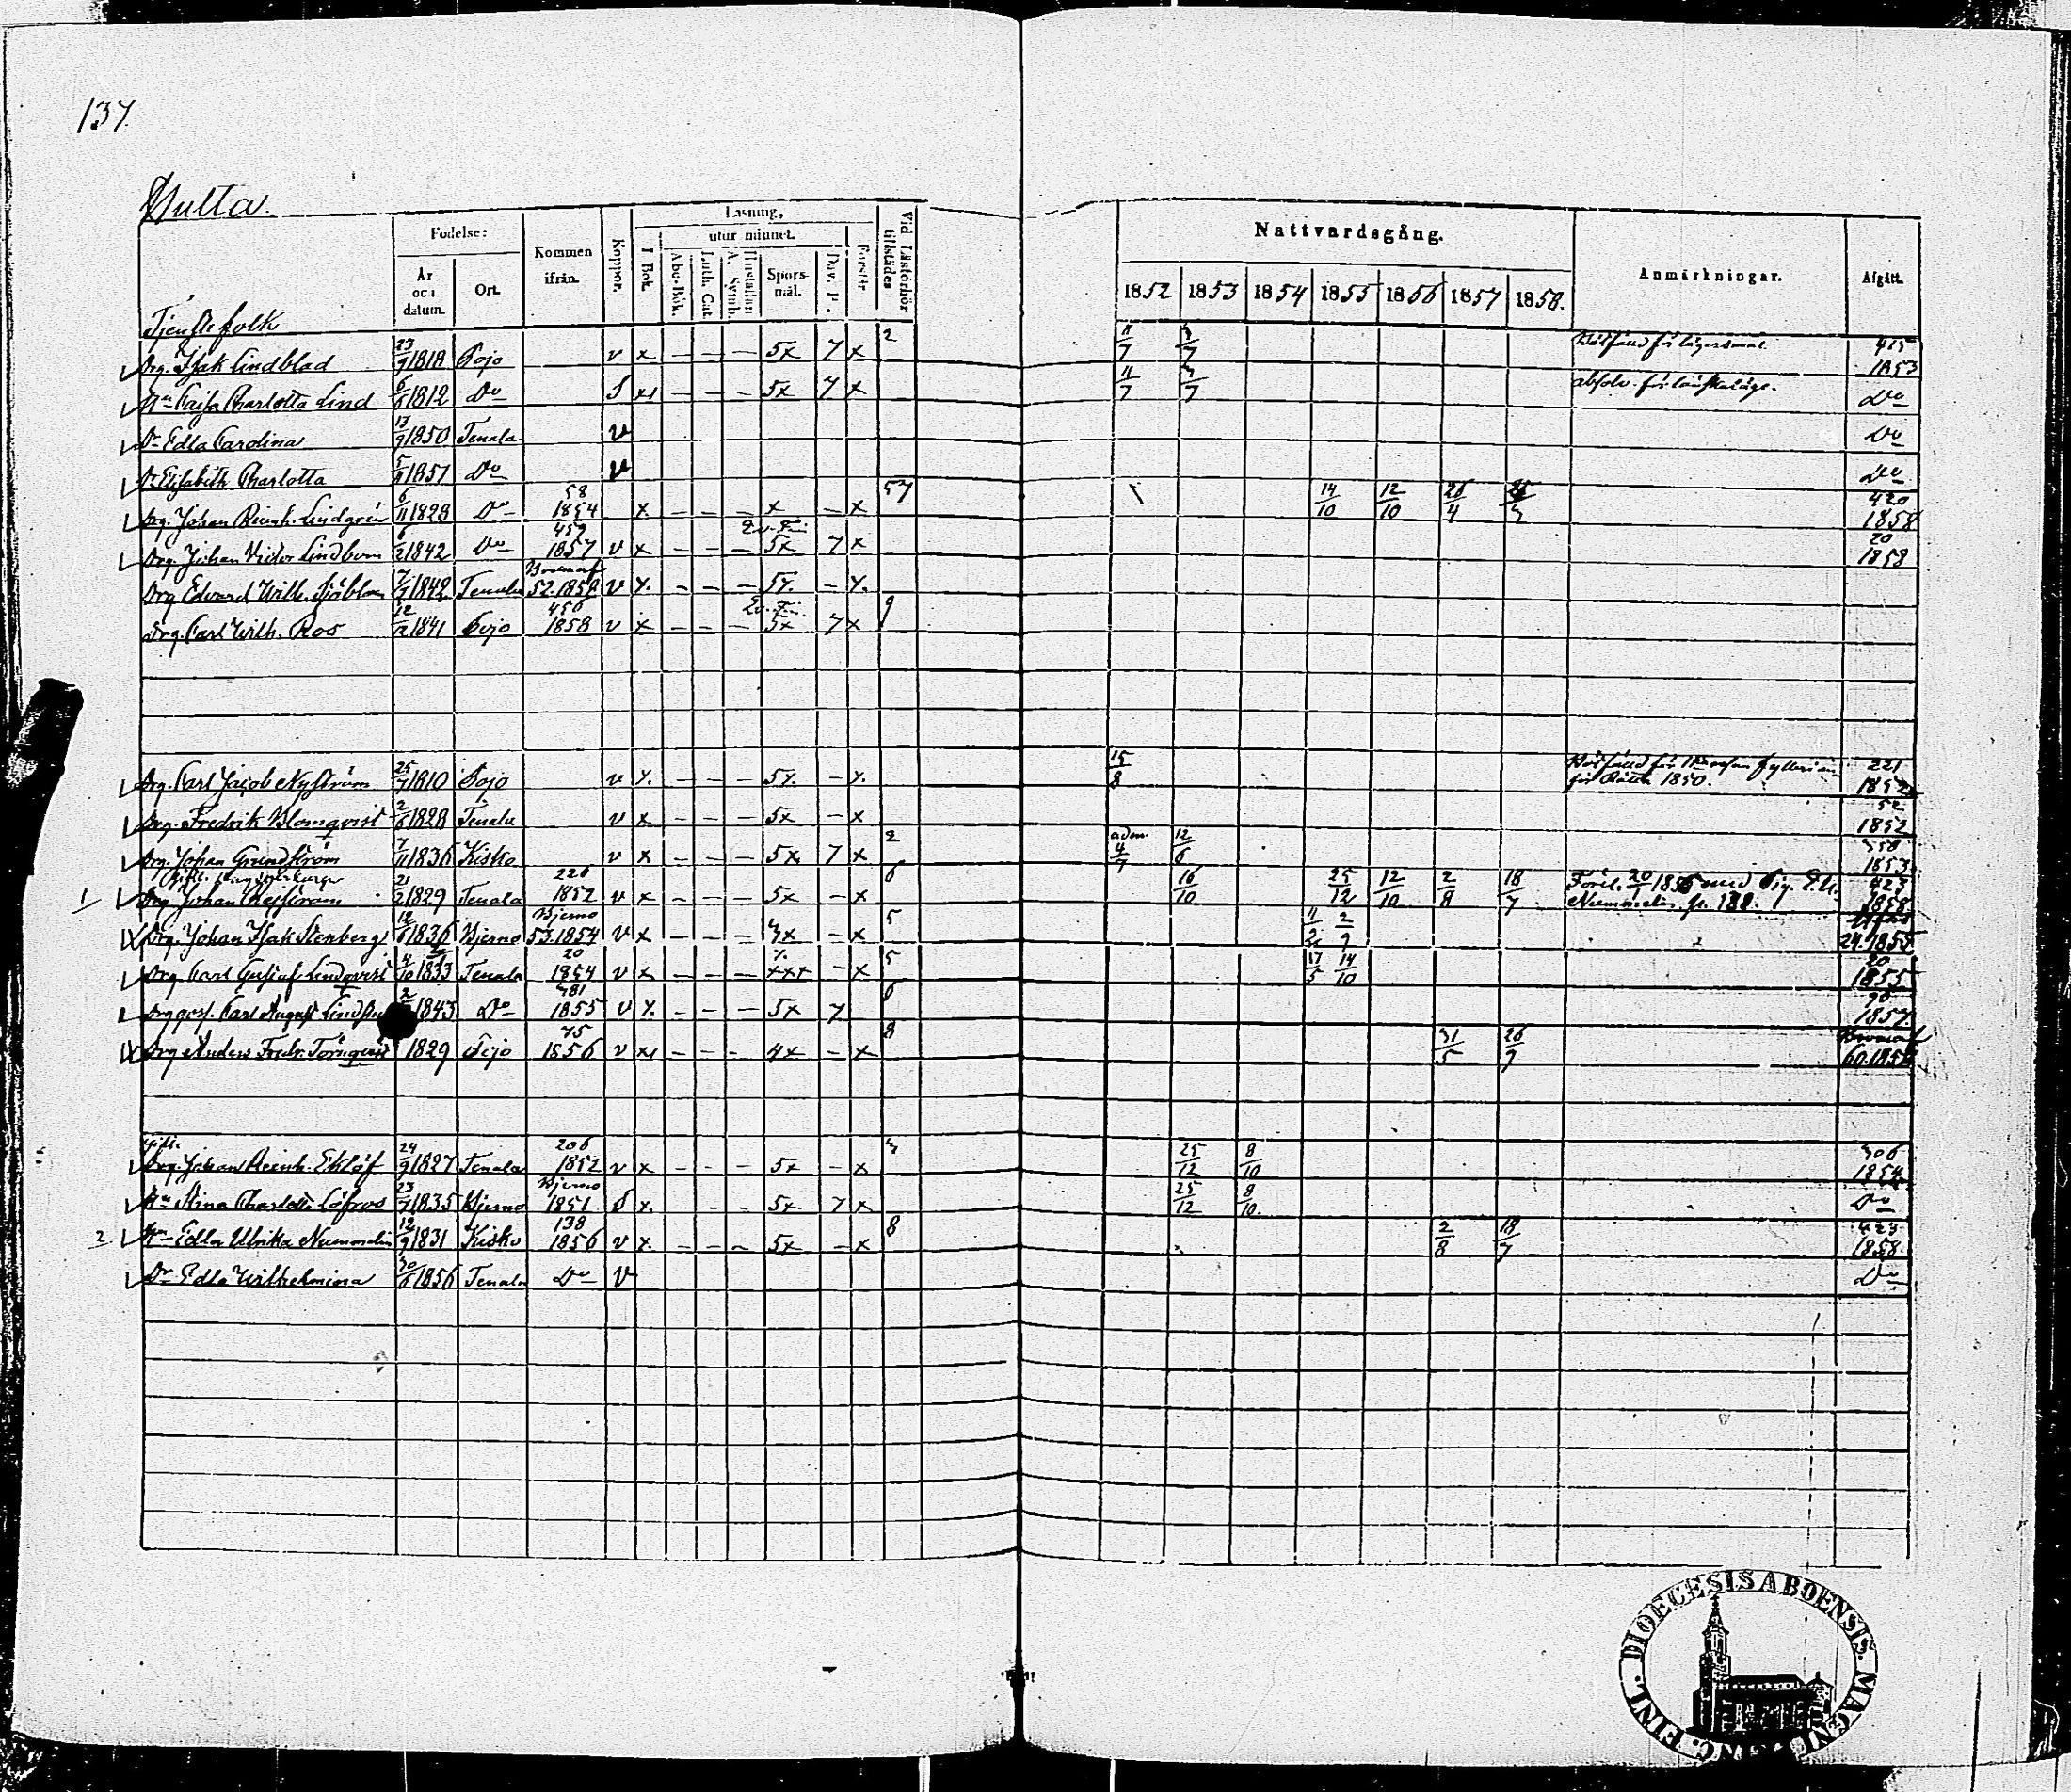 137.
Hulta.
Födelse:
År och datum.
Ort.
Kommen ifrån.
Koppor.
Läsning,
I Bok.
utur minnet.
Abc-Bok.
Luth. Cat.
Hustaflan A. Symb.
Spörs-mål.
Dav. P.
Förstår
Vid Läsförhör tillstädes
Nattvardsgång.
1852 1853 1854 1855 1856 1857 1858.
Anmärkningar.
Afgått.
Tjenstefolk
Drg. Isak Lindblad 23/9 1818 Pojo v x – – – 5x 7 x 2 11/7 3/7 415 1853
Hu Cajsa Charlotta Lind 6/5 1812 Do 5x 7 x 11/7 3/7 absolv. för lönskaläge. Do
Dr Edla Carolina 13/9 1850 Tenala v Do
Dr Elisabeth Charlotta 5/9 1851 Do v Do
Drg. Johan Reinh. Lindgren 6/11 1828 Do 58 1854 x – – – x – x 57 14/10 12/10 26/4 420 1858
Drg. Johan Victor Lindbom 6/2 1842 Do 459 1857 v x – – – 5x 7 x 20 1858
Drg Edvard Wilh. Sjöblom 7/7 1842 Tenala Bromarf 52.1858 v x – – – 5x – x
Drg. Carl Wilh. Ros 12/12 1841 Pojo 456 1858 v x – – – 5x 7 x 9
Drg. Carl Jacob Nyström 25/7 1810 Pojo v x – – – 5x – x 15/8 för Rätta 1850. 221 1852
Drg. Fredrik Blomqvist 2/6 1828 Tenala v x – – – 5x – x 52 1852
Drg. Johan Grundström 7/11 1836 Kisko v x – – – 5x 7 x 2 adm. 4/7 12/6 358 1853
1 Drg. Johan 21/2 1829 Tenala 226 1852 v x – – – 5x – x 6 16/10 25/12 12/10 2/8 18/7 med Pig. E. U. Nummelin p. 138. 423 1858
Drg. Johan Isak Stenberg 12/6 1836 Bjerno Bjerno 53.1854 v x – – – 3x – x 5 11/2 2/9 24.1855
Drg Carl Gustaf Lindqvist 4/10 1833 Tenala 20 1854 v x – – – xxx – x 5 17/5 14/10 20 1855
Drggoss. Carl August 1843 Do 381 1855 v x – – – 5x 7 6 90 1857
Drg Anders Fredr. Törnqvist 1829 Pojo 75 1856 v x – – – 4x – x 8 31/5 26/7 Bromarf
gift.
Drg. Johan Reinh. Eklöf 24/9 1827 Tenala 206 1852 v x – – – 5x – x 3 25/12 8/10 306 1854
Hu Stina Charlotta Löfroos 23/7 1835 Bjerno Bjerno 1851 x – – – 5x 7 x 25/12 8/10 Do
2 Hu Edla Ulrika Nummelin 12/9 1831 Kisko 138 1856 v x – – – 5x – x 8 2/8 18/7 423 1858
Dr Edla Wilhelmina 30/6 1856 Tenala Do v Do
DIOECESIS ABOENSIS. MAGNI DUC. FINL.